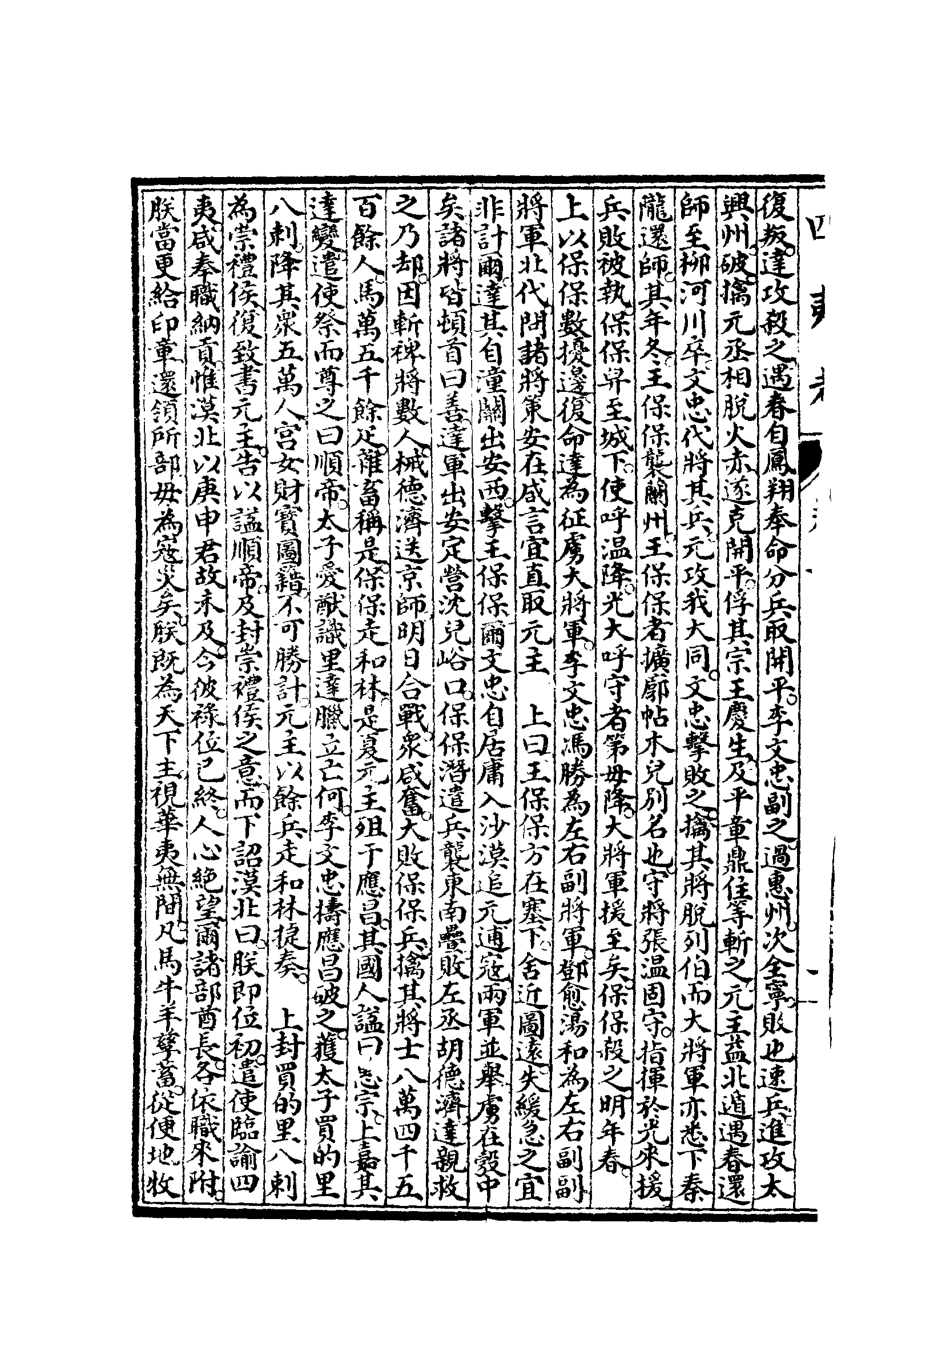 四夷考
復叛達攻殺之遇春自鳳翔奉命分兵取開平李文忠副之過惠州次全寧敗也速兵進攻太
興州破擒元丞相脫火赤遂克開平俘其宗王慶生及平章鼎住等斬之元主益北遁遇春還
師至柳河川卒文忠代將其兵元攻我大同文忠擊敗之擒其將脫列伯而大將軍亦悉下秦
隴還師其年冬王保保襲蘭州王保保者擴廓帖木兒別名也守將張温固守指揮於光來援
兵敗被執保保舁至城下使呼温降光大呼守者第毋降大將軍援至矣保保殺之明年春
上以保保數擾邊復命達為征虜大將軍李文忠馮勝為左右副將軍鄧愈湯和為左右副副
將軍北代問諸將策安在咸言宜直取元主　上曰王保保方在塞下舍近圖遠失緩急之宜
非計爾達其自潼關出安西擊王保保爾文忠自居庸入沙漠追元逋寇兩軍並舉虜在彀中
矣諸將皆頓首曰善達軍出安定營沈兒峪口保保潛遣兵襲東南壘敗左丞胡德濟達親救
之乃却因斬裨將數人械德濟送京師明日合戰衆咸奮大敗保保兵擒其將士八萬四千五
百餘人馬萬五千餘疋雜畜稱是保保走和林是夏元主殂于應昌其國人謚曰惠宗上嘉其
達變遣使祭而尊之曰順帝太子愛猷識里達臘立亡何李文忠擣應昌破之獲太子買的里
八剌降其衆五萬人宮女財寶圖籍不可勝計元主以餘兵走和林捷奏　上封買的里八剌
為崇禮侯復致書元主告以謚順帝及封崇禮侯之意而下詔漠北曰朕即位初遣使臨諭四
夷咸奉職納貢惟漠北以庚申君故未及今彼祿位已終人心絶望爾諸部酋長各依職來附
朕當更給印章還領所部毋為寇災矣朕既為天下主視華夷無間凡馬牛羊孳畜從便地牧